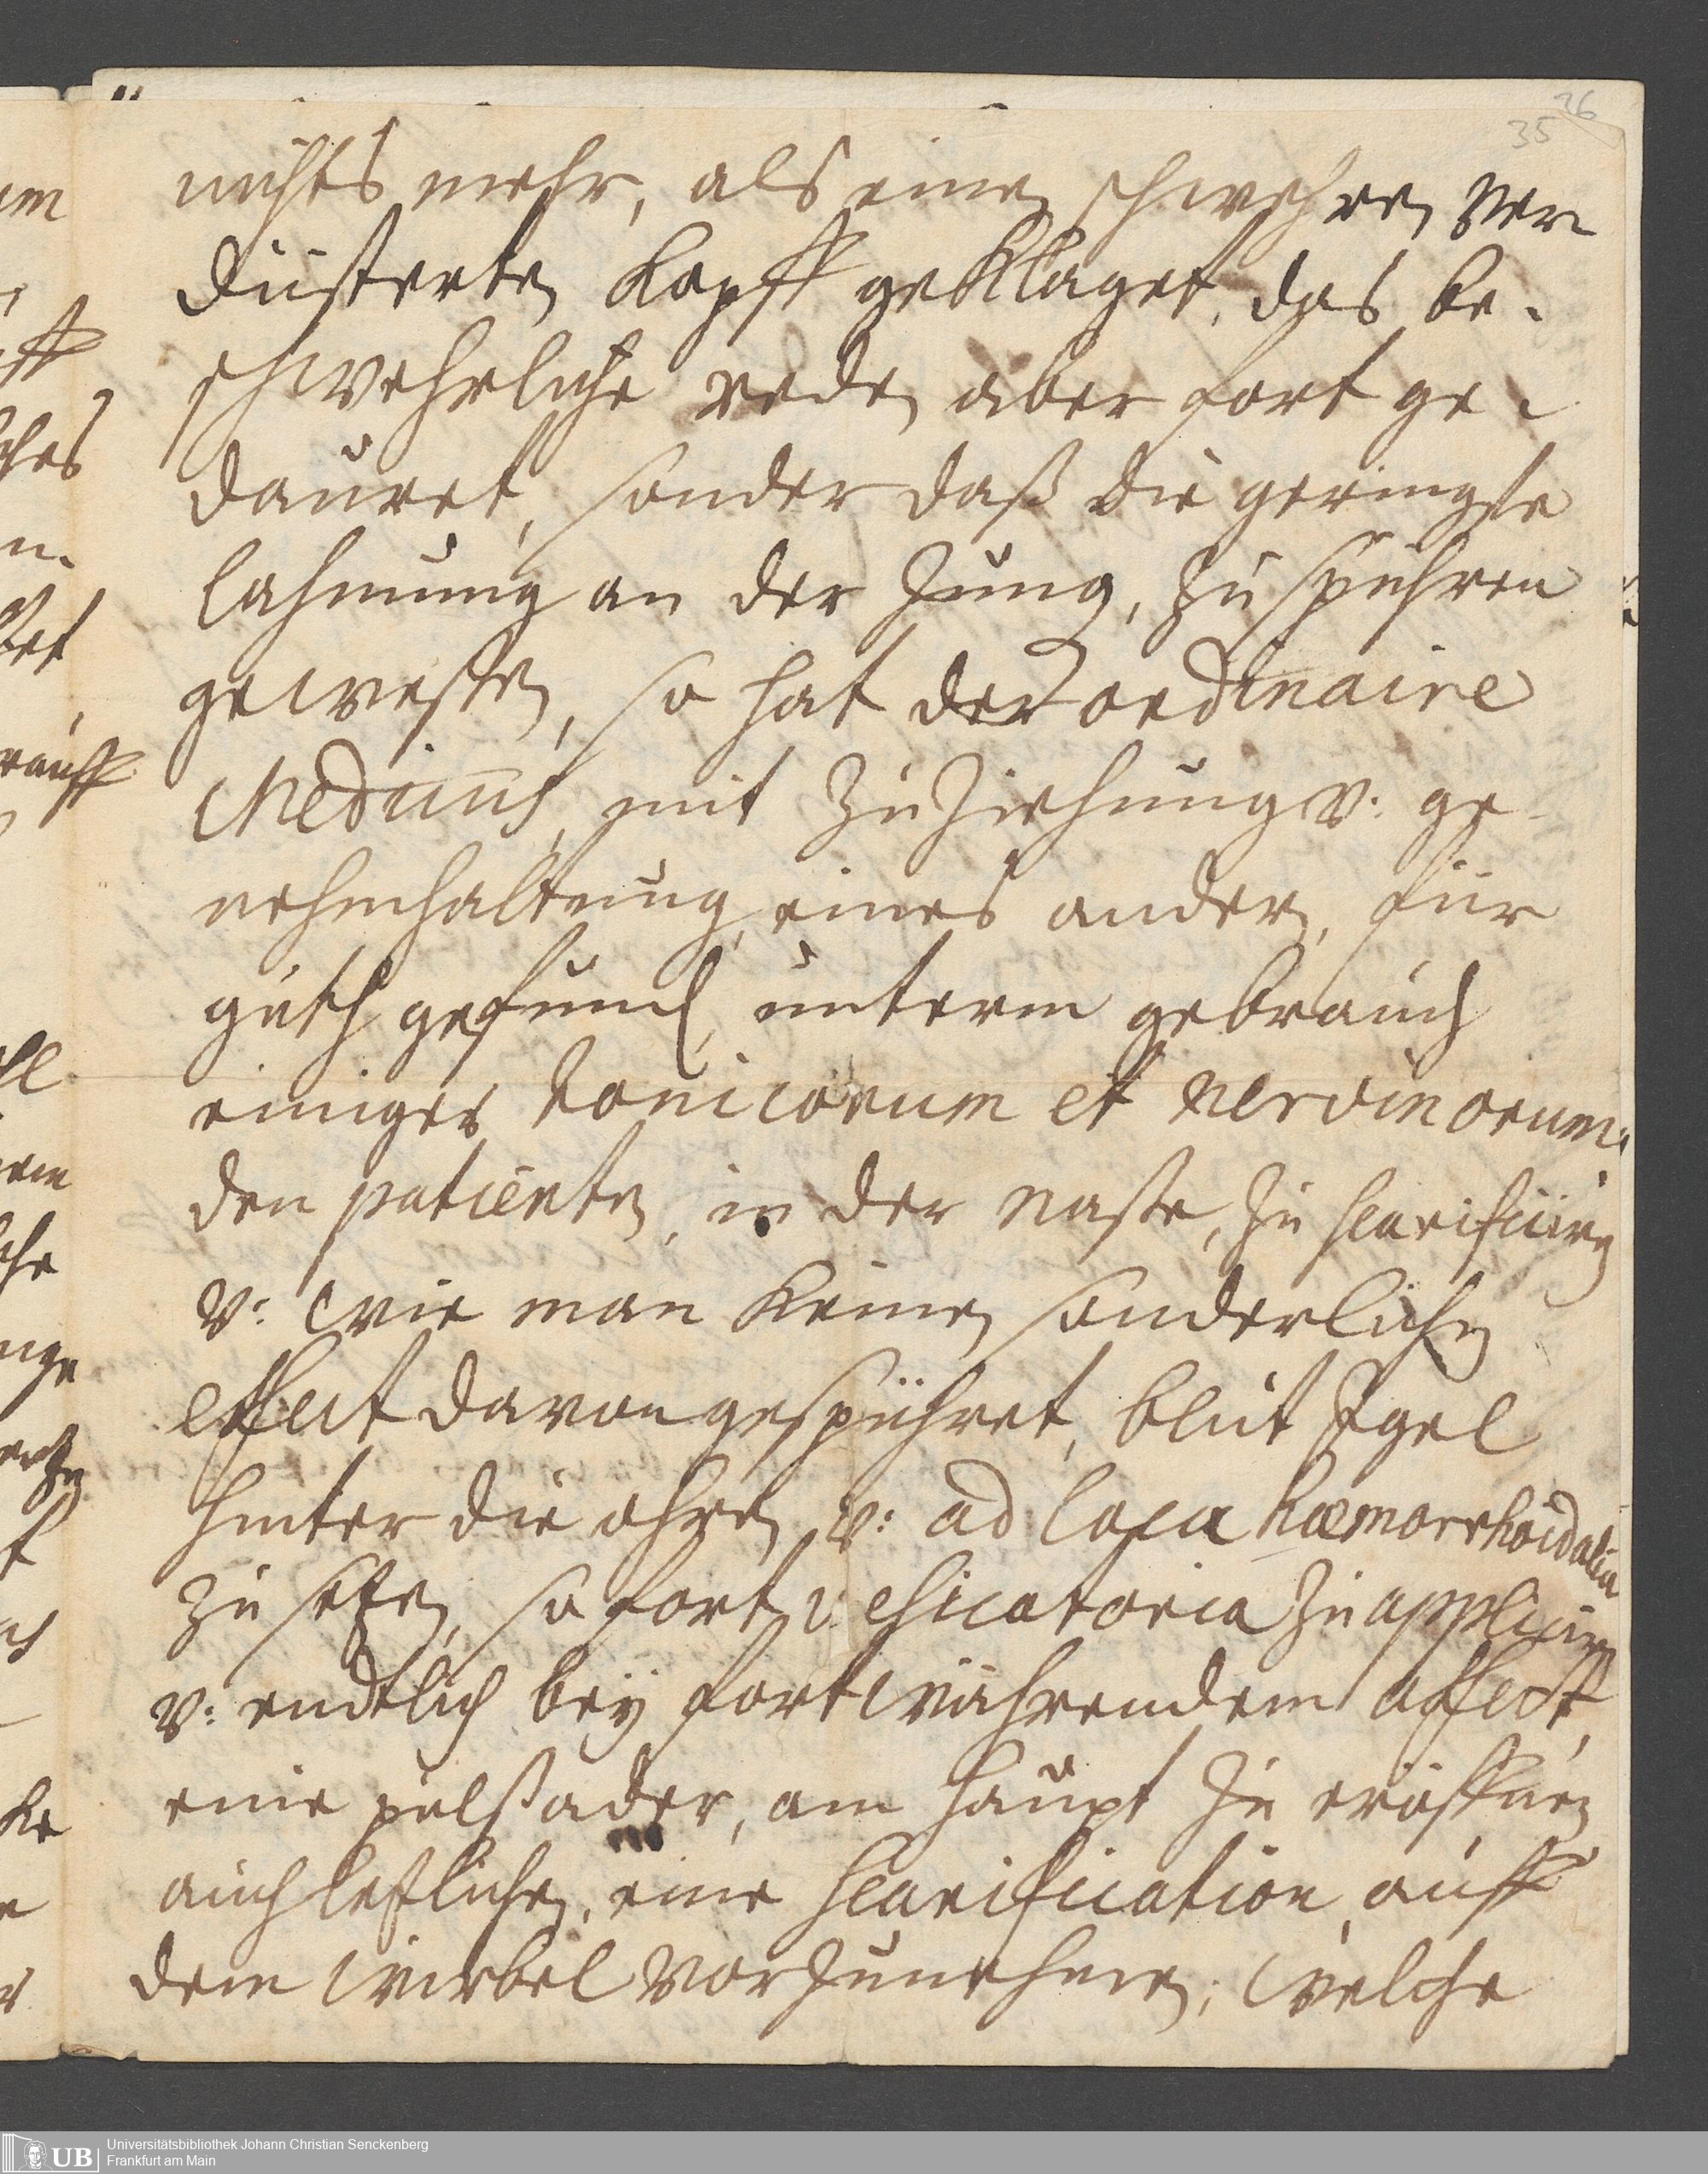 36
35
nichts mehr, als einen schwehren ver
düsterten Kopff geklaget, das be-
schwehrliche reden aber fort ge-
dauret, sonder daß die geringste
lahmung an der Zung, zu spühren
gewessen, so hat der ordinaire
Medicus, mit Zuziehung v: ge-
nehmhaltung eines andern, für
guth gefund, unterm gebrauch
einiger tonicorum et nervinorum,
den patienten, in der nasse, zu scarificiren
v: wie man keinen sonderlichen
effect davon gespühret, blut Egel
hinter die ohren v: ad loca hæmorrhoidalia
zu setzen, so fort vesicatoria zu appliciren
v: endtlich bey fortwährendem affect,
eine pulßader, am haupt zu eröffnen
auch letzlichen, eine scarification, auff
dem wirbel vorzunehmen; welche
UB
Universitätsbibliothek Johann Christian Senckenberg
Frankfurt am Main